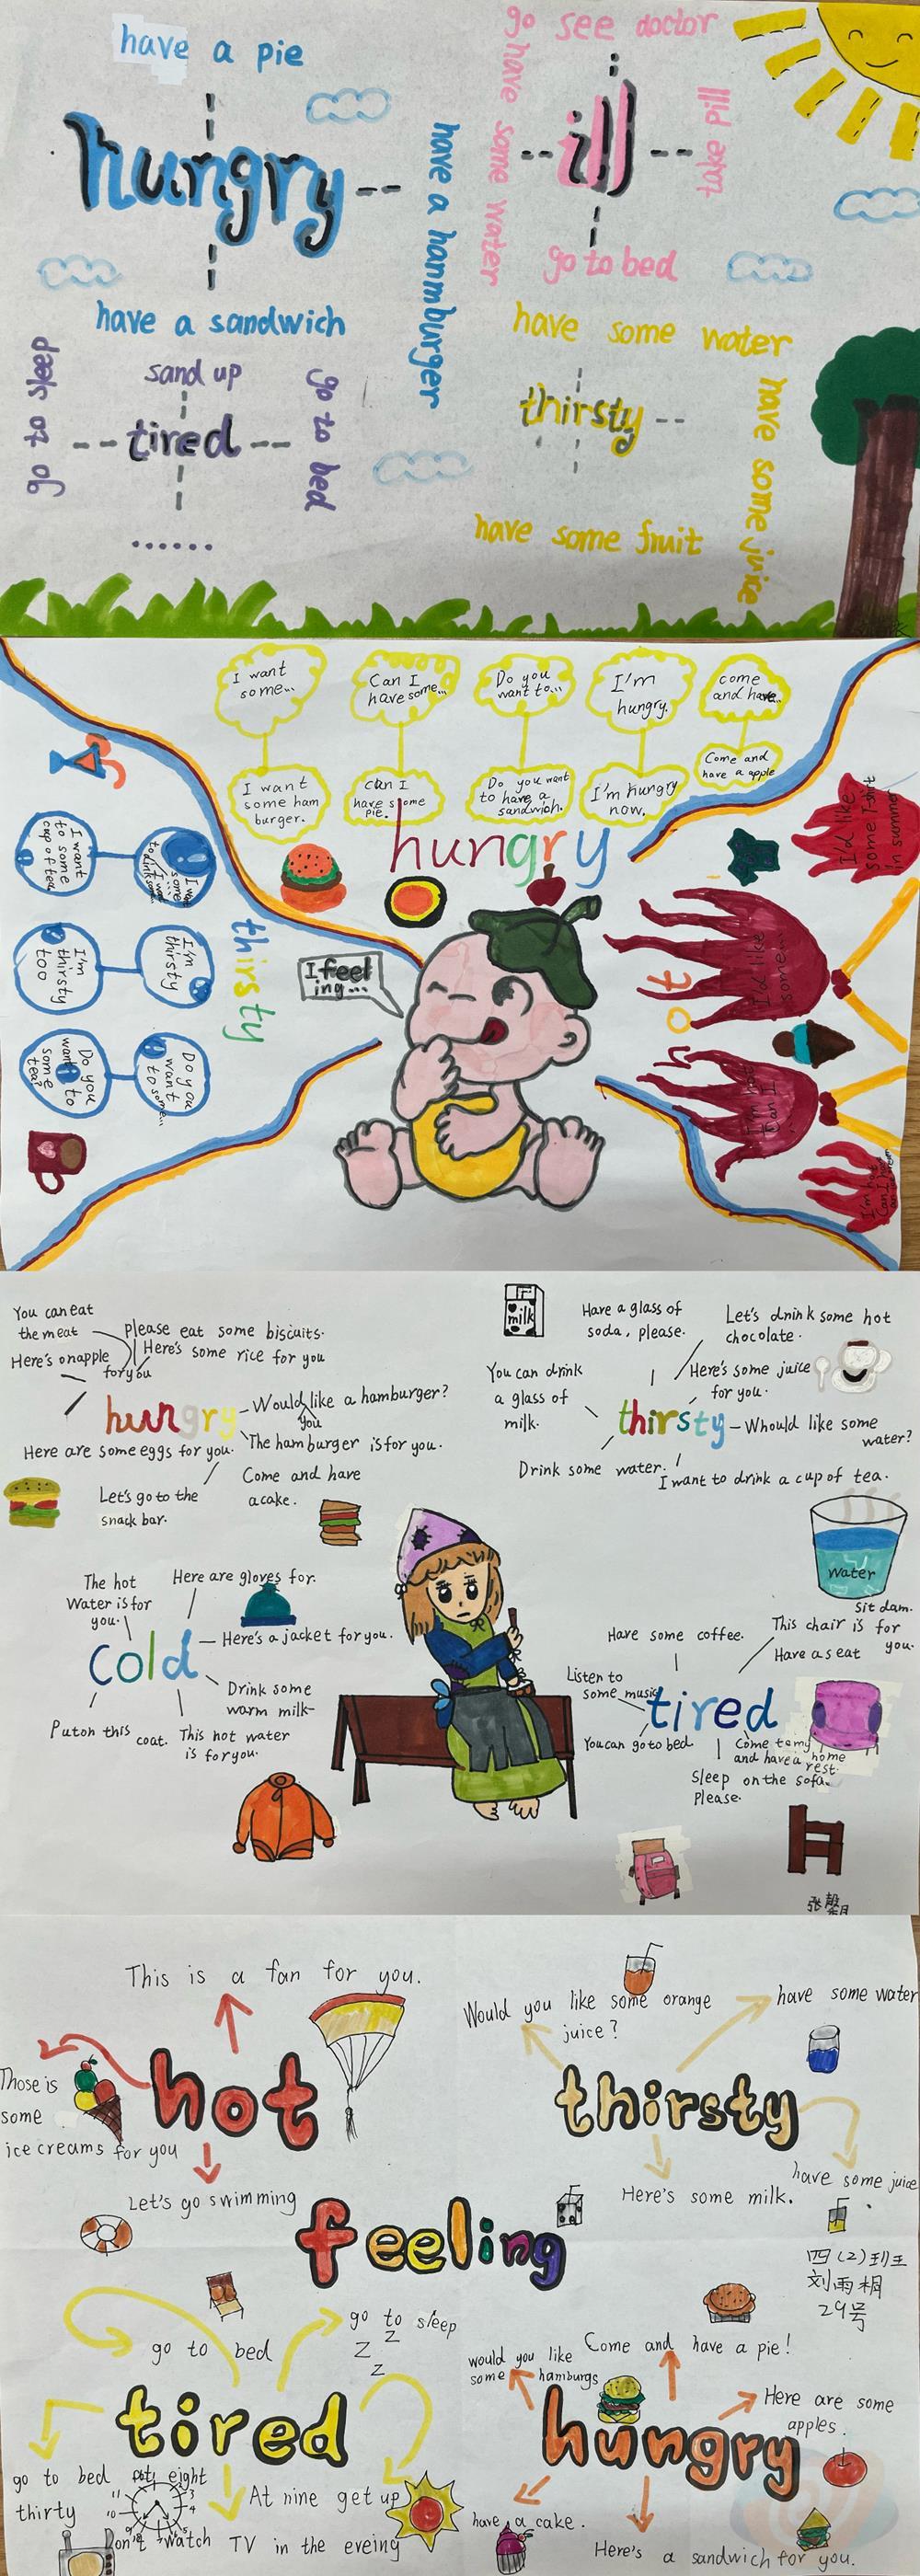 have a pie
hungry
have a hanmburger
have a sandwich
go see doctor
go have some water
ill
take pill
go to bed
sand up
go to sleep
tired
go to bed
......
have some water
thirsty
have some juice
have some fruit
I want
some...
Can I
have some...
Do you
want to...
I'm
hungry.
come
and have...
I want
some ham
burger.
can I
have some
pie.
Do you want
to have a
sandwich.
I'm hungry
now.
Come and
have a apple
hungry
I feel
ing...
thirsty
I want
to some
cup of tea.
I'm
thirsty
I'm
thirsty
too
Do you
want
to some...
Do you
want to
some
tea?
I'd like
some T-shirt
in summer
I'd like
some...
I'm hot
Can I
I'm hot
Can I have
You can eat
the meat
Please eat some biscuits.
Here's onapple
for you
Here's some rice for you
hungry
Would like a hamburger?
you
Here are some eggs for you.
The hamburger is for you.
Let's go to the
snack bar.
Come and have
a cake.
milk
Have a glass of
soda, please.
Let's drink some hot
chocolate.
You can drink
a glass of
milk.
Here's some juice
for you.
thirsty
Whould like some
water?
Drink some water.
I want to drink a cup of tea.
water
The hot
Water is for
you.
Here are gloves for.
cold
Here's a jacket for you.
Drink some
warm milk
Put on this coat.
This hot water
is for you.
Sit dam.
Have some coffee.
This chair is for
you.
Have a seat
Listen to
some music
tired
You can go to bed
Come to my
home
and have a rest.
Sleep on the sofa
Please.
This is a fan for you.
Those is
some
ice creams for you
hot
Let's go swimming
Would you like some orange
juice?
have some water
thirsty
Here's some milk.
have some juice
feeling
四(2)班
刘雨桐
29号
go to bed
go to sleep
Z Z
Z
tired
go to bed
eight
thirty
At nine get up
watch TV in the eveing
would you like
some hamburgs
Come and have a pie!
Here are some
apples.
hungry
have a cake.
Here's a sandwich for you.